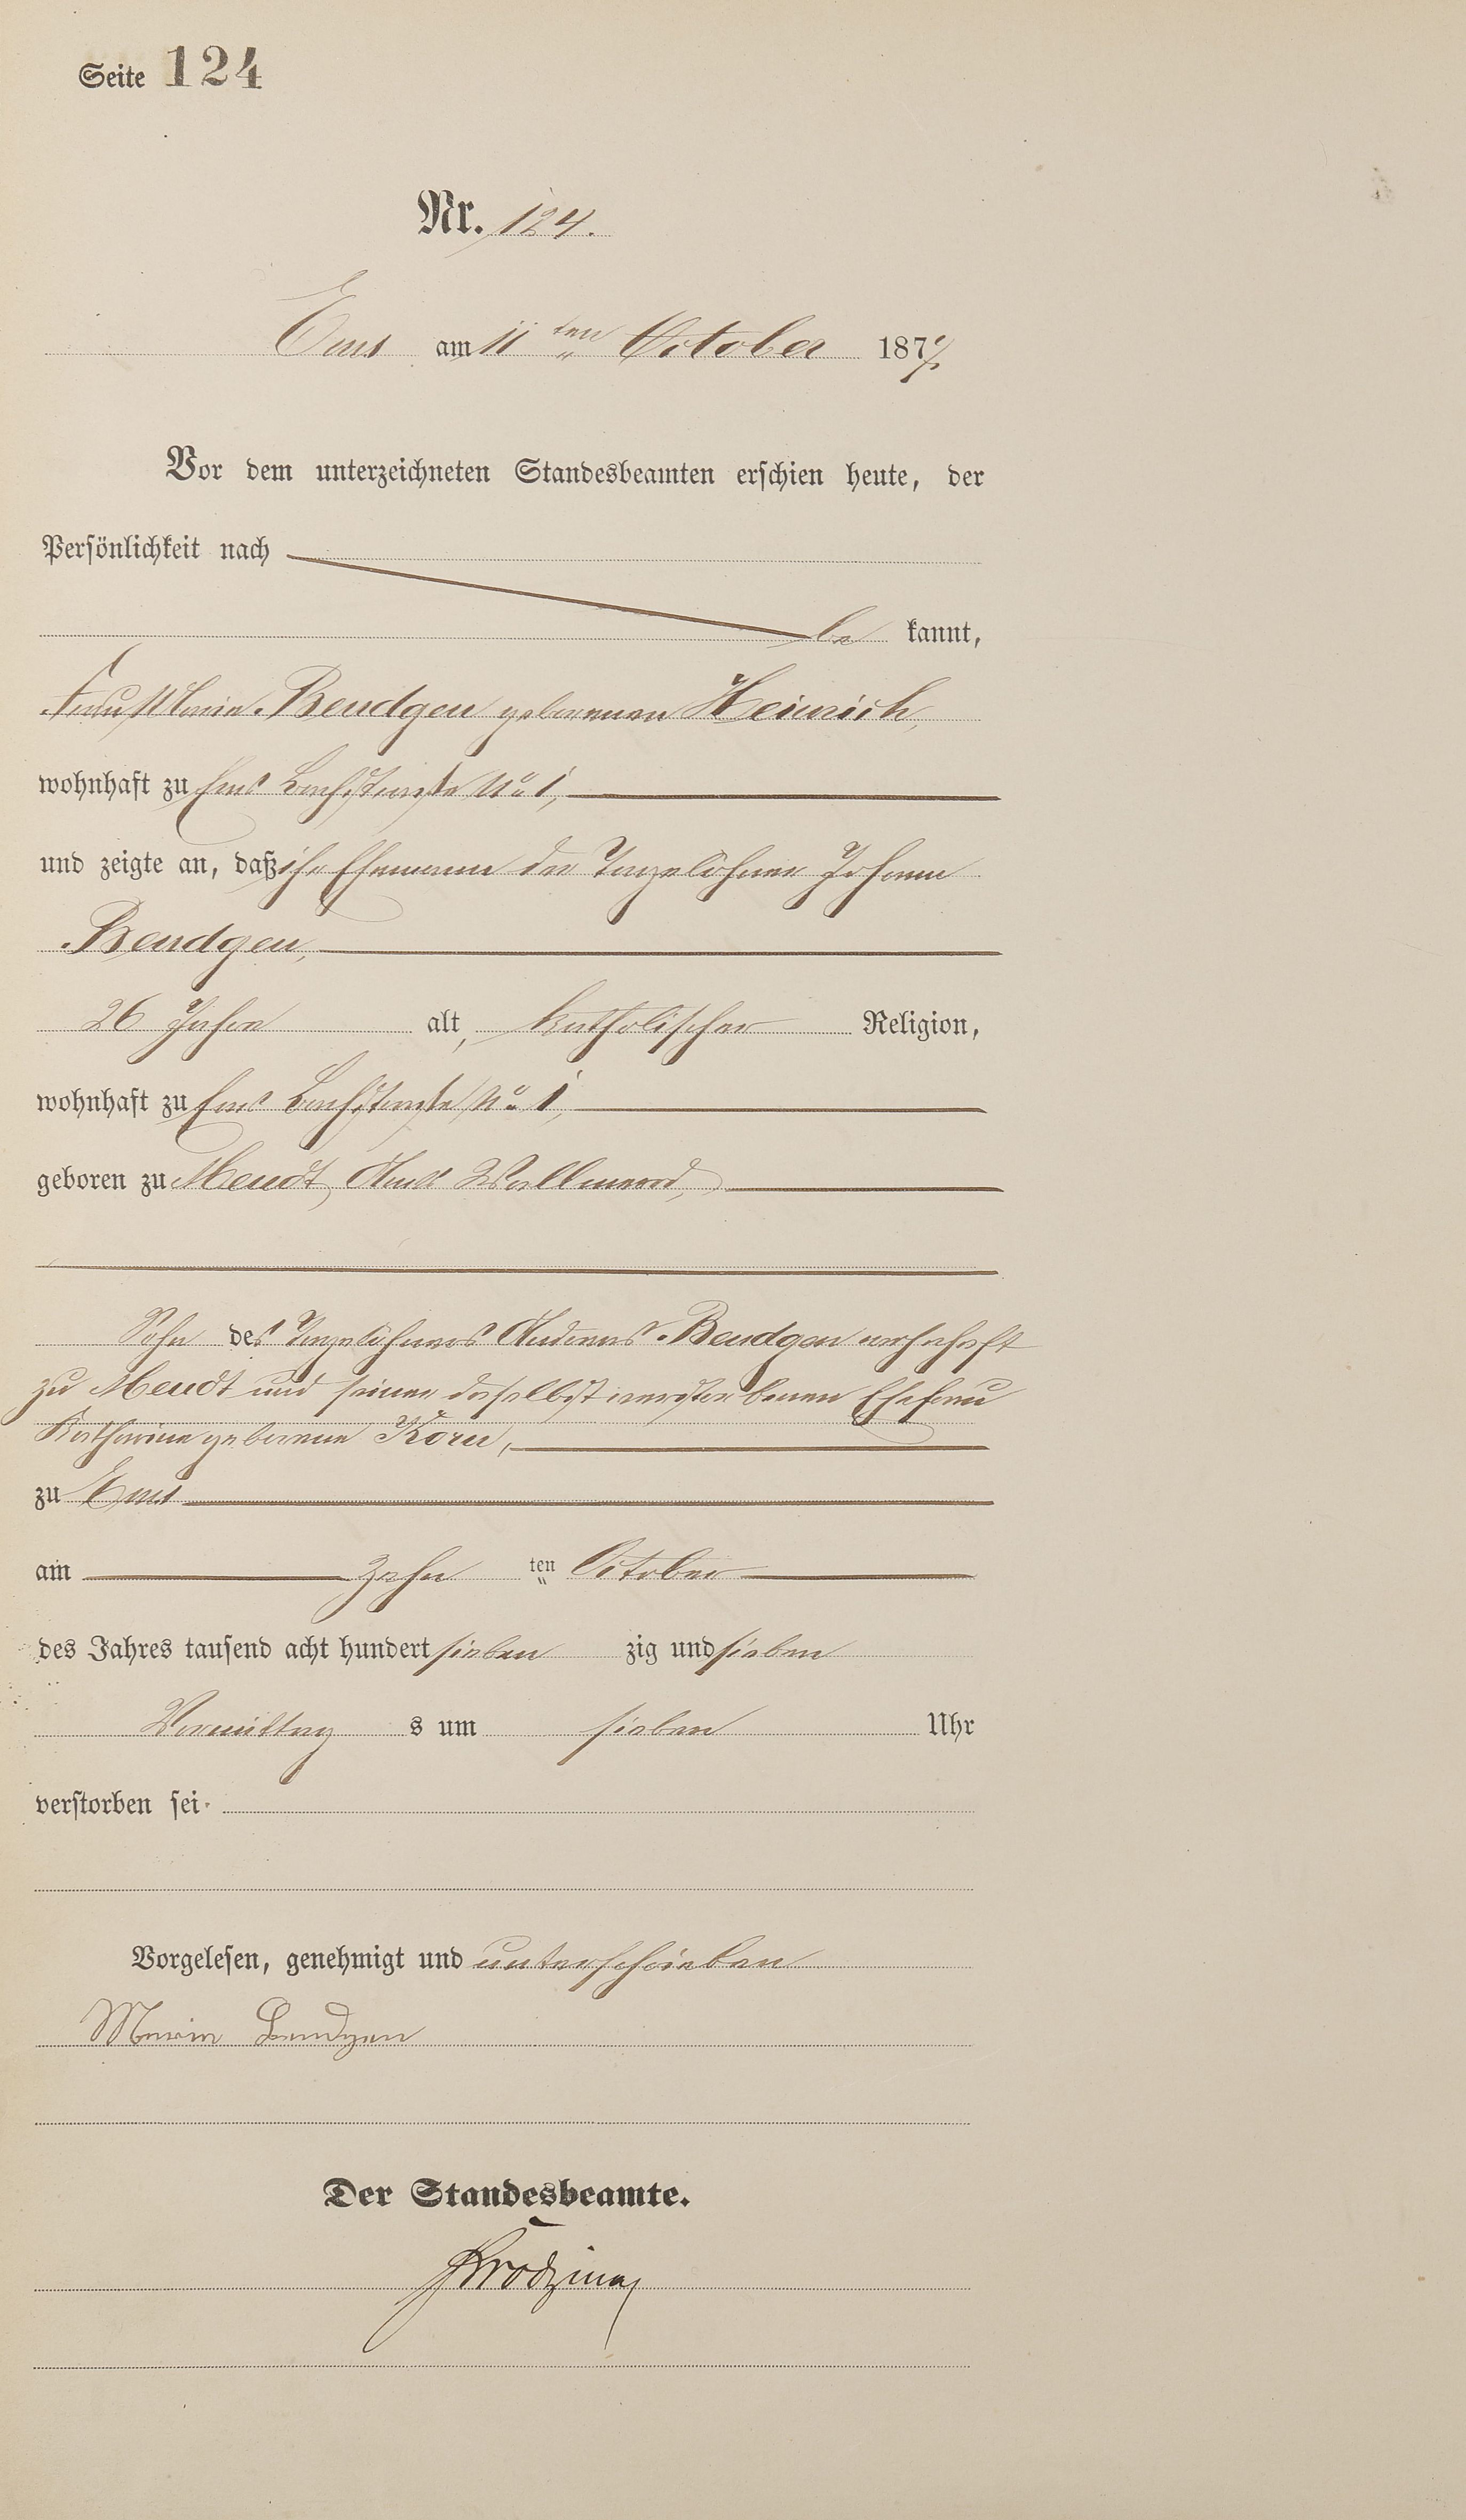 Seite 124
Nr. 124.
Ems am 11ten October 1877.
Vor dem unterzeichneten Standesbeamten erschien heute, der
Persönlichkeit nach
be kannt,
Frau Maria Bendgen geborenen Heinrich,
wohnhaft zu Ems Bachstraße No 1,
und zeigte an, daß ihr Ehemann der Tagelöhner Johann
Bendgen,
26 Jahre alt, katholischer Religion,
wohnhaft zu Ems Bachstraße No 1,
geboren zu Meudt, Amts Wallmerod,
Sohn des Tagelöhners Andreas Bendgen wohnhaft
zu Meudt und seiner daselbst verstorbenen Ehefrau
Katharina geborene Korn,
zu Ems
am zehn ten October
des Jahres tausend acht hundert sieben zig und sieben
Vormittag s um sieben Uhr
verstorben sei.
Vorgelesen, genehmigt und unterschrieben
Maria Bendgen
Der Standesbeamte.